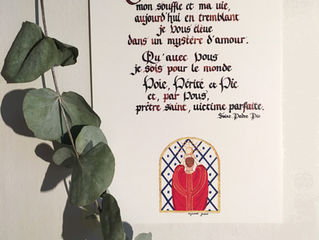 mon souffle et ma vie,
aujourd'hui en tremblant
je vous élève
dans un mystère d'amour.
Qu'avec vous
je sois pour le monde
Voie, Vérité et Vie
et, par vous,
prêtre saint, victime parfaite.
Saint Padre Pio